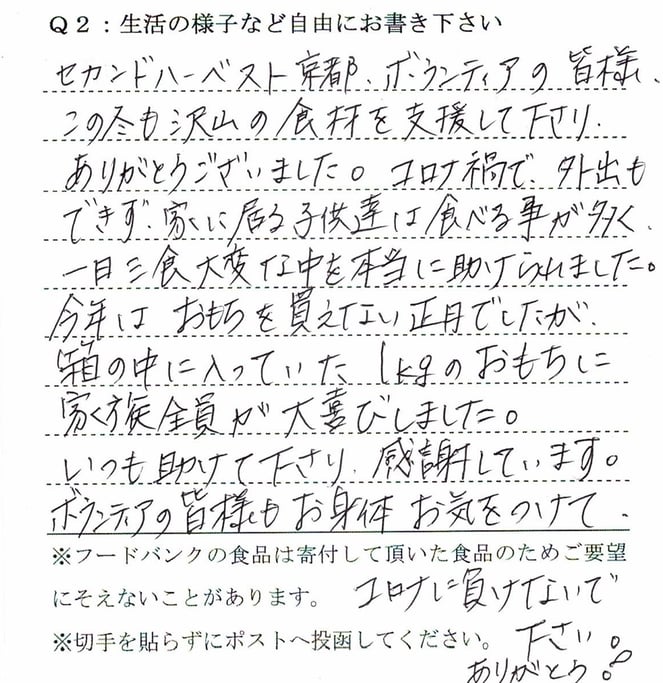 Q2:生活の様子など自由にお書き下さい
セカンドハーベスト京都、ボランティアの皆様、
この冬も沢山の食材を支援して下さり、
ありがとうございました。コロナ禍で、外出も
できず、家に居る子供達は食べる事が多く、
一日三食大変な中を本当に助けられました。
今年は おもちを買えない正月でしたが、
箱の中に入っていた 1kgのおもちに
家族全員が大喜びしました。
いつも助けて下さり、感謝しています。
ボランティアの皆様もお身体 お気をつけて、
※フードバンクの食品は寄付して頂いた食品のためご要望
にそえないことがあります。 コロナに負けないで
※切手を貼らずにポストへ投函してください。 下さい。
ありがとう!